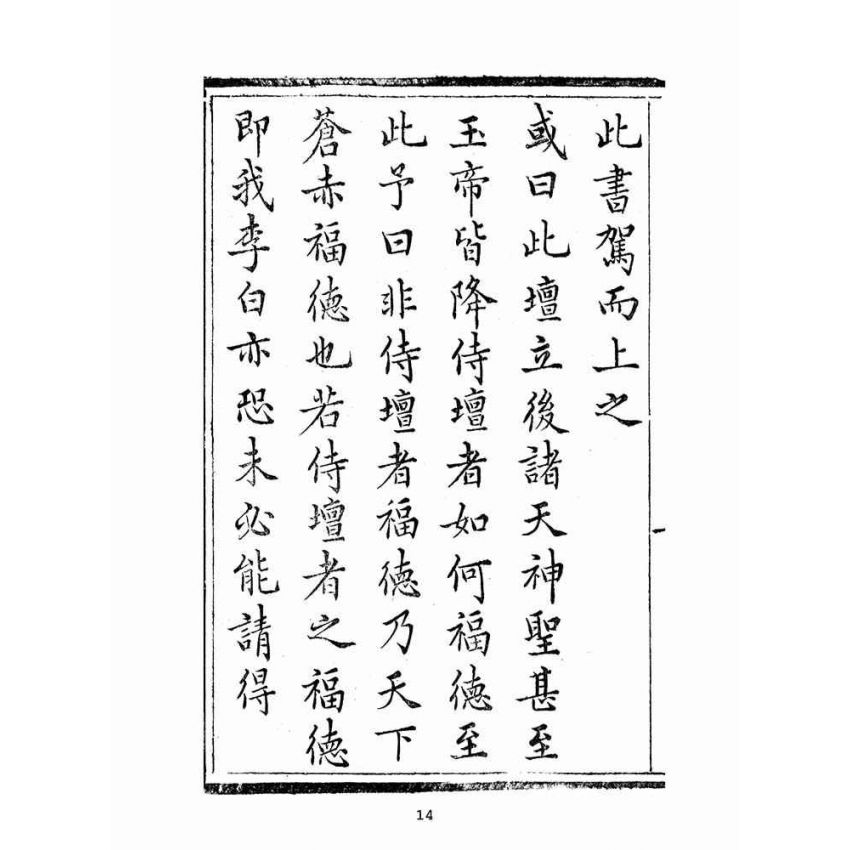 此書駕而上之
或曰此壇立後諸天神聖甚至
玉帝皆降侍壇者如何福德至
此予曰非侍壇者福德乃天下
蒼赤福德也若侍壇者之福德
即我李白亦恐未必能請得
14